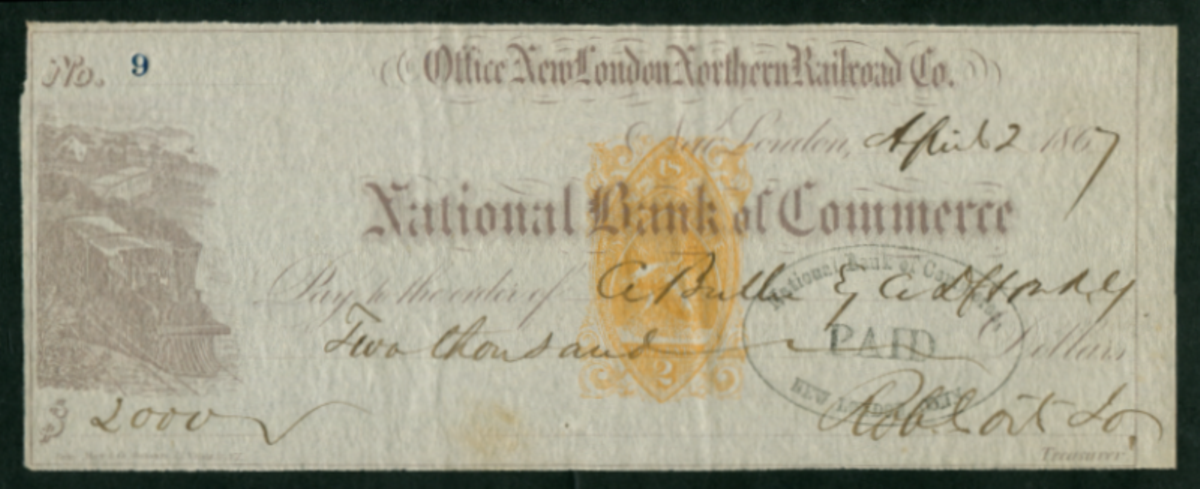 No. 9
Office New London Northern Railroad Co.
New London, April 2 1867
National Bank of Commerce
Pay to the order of
Two thousand Dollars
National Bank of Commerce,
PAID
NEW LONDON
$ 2000
Treasurer